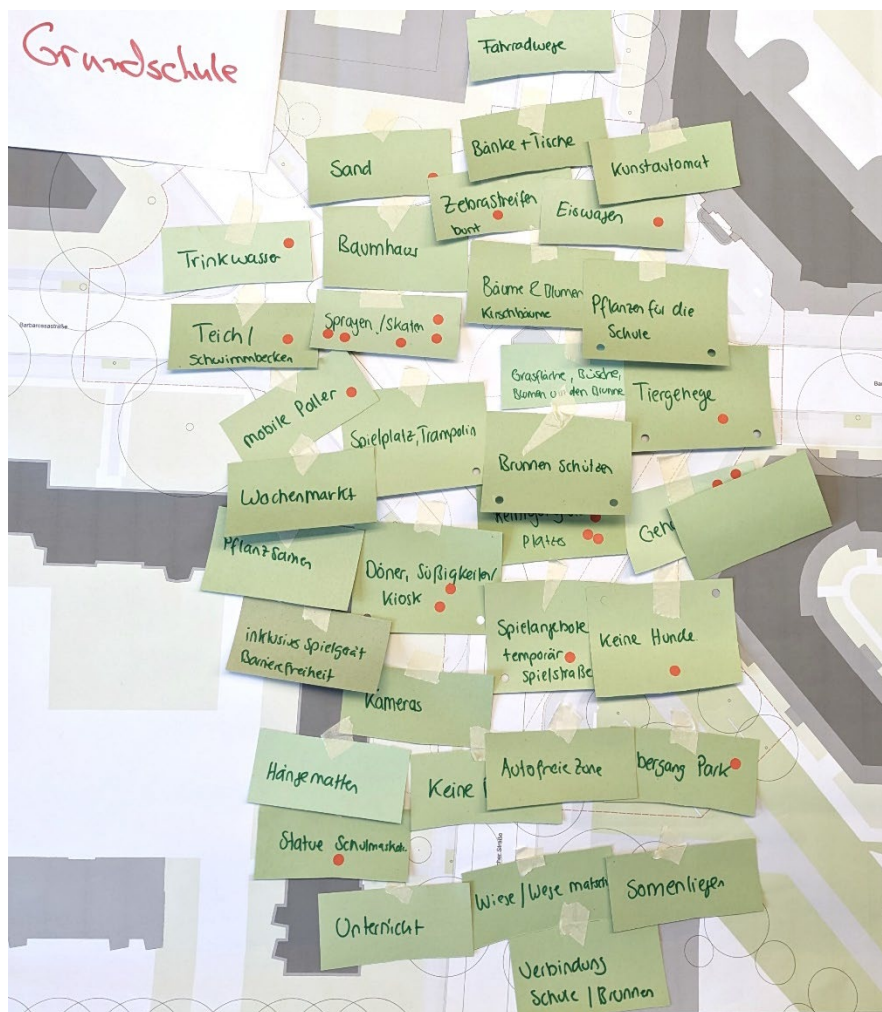 Grundschule
Fahrradwege
Bänke + Tische
Kunstautomat
Sand
Zebrastreifen
bunt
Eiswagen
Trinkwasser
Baumhaus
Bäume & Blumen
Kirschbäume
Pflanzen für die
Schule
Barbarossastraße
Teich /
Schwimmbecken
Sprayen / Skaten
Grasfläche, Büsche,
Blumen um den Brunne
Tiergehege
mobile Poller
Spielplatz, Trampolin
Brunnen schützen
Wochenmarkt
Platzes
Geh
Pflanzsamen
Döner, Süßigkeiten/
Kiosk
Spielangebote
temporär
spielstraße
Keine Hunde
inklusives Spielgerät
Barrierefreiheit
Kameras
Hängematten
Keine
Autofreie Zone
bergang Park
Statue Schulmaskot
Unterricht
Wiese / Wege matsch
Sonnenliegen
Verbindung
Schule / Brunnen